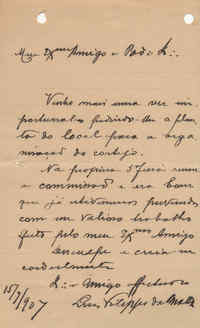 Meu Exmo Amigo e
Venho mais uma vez im-
portunal-o pedindo-lhe a plan-
ta do local para a orga-
nisação do cortejo.
Na proxima 5ª feira reune
a commissão e era bom
que já estivessemos
com um valioso trabalho
feito pelo meu Exmo Amigo
Desculpe e creia-me
cordealmente
Amigo affectuoso
15/7/907
Luis Filippe da Matta